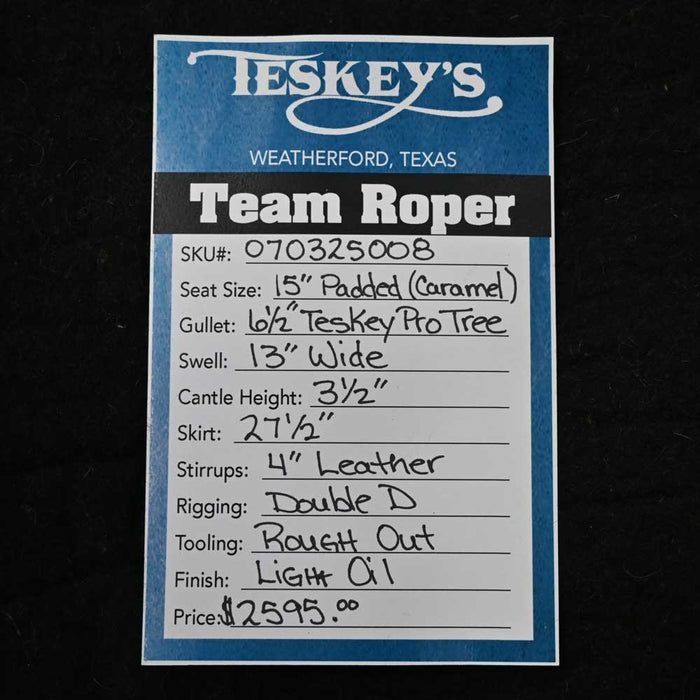 TESKEY'S
WEATHERFORD, TEXAS
Team Roper
SKU#: 070325008
Seat Size: 15" Padded (Caramel)
Gullet: 6½" Teskey Pro Tree
Swell: 13" Wide
Cantle Height: 3½"
Skirt: 27½"
Stirrups: 4" Leather
Rigging: Double D
Tooling: Rough Out
Finish: Light Oil
Price: $2595.00